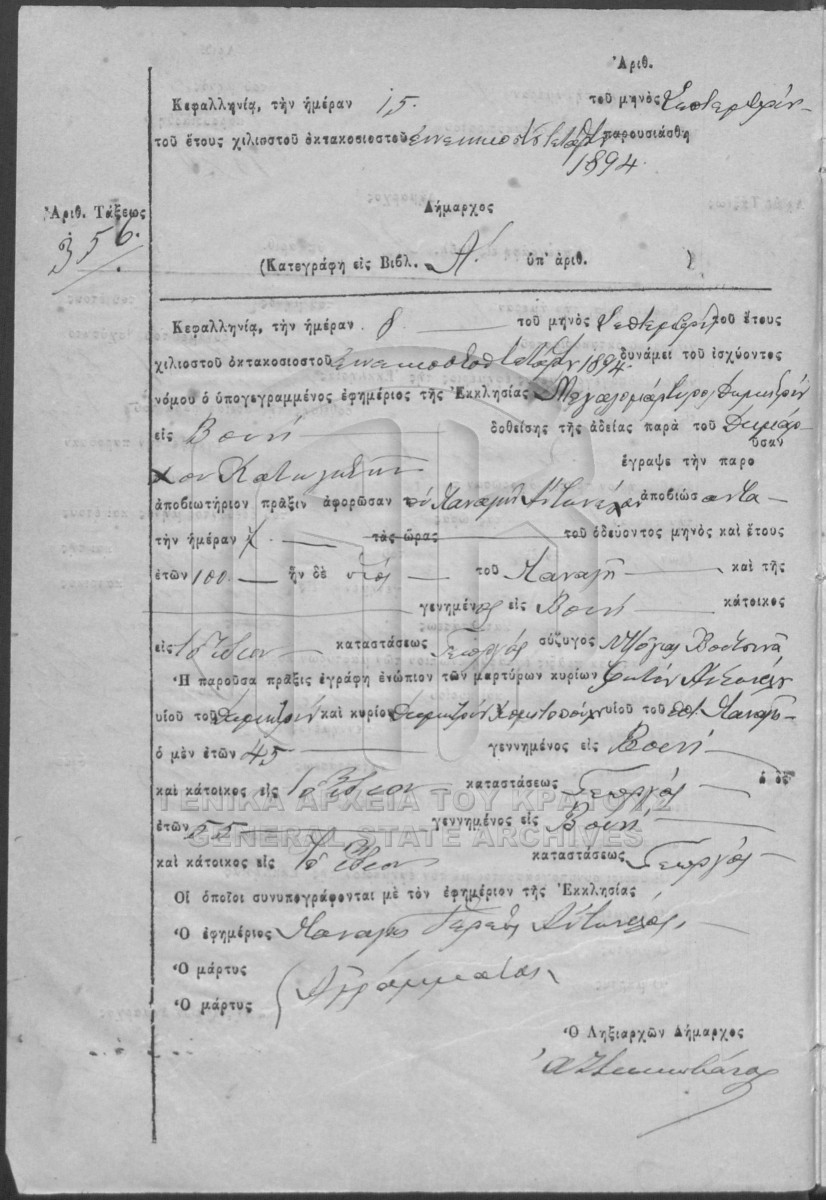 Ἀριθ.
Κεφαλληνίᾳ, τὴν ἡμέραν 15. τοῦ μηνὸς Σεπτεμβρίου
τοῦ ἔτους χιλιοστοῦ ὀκτακοσιοστοῦ ἐνενηκοστοῦ τετάρτου παρουσιάσθη
1894.
Ἀριθ. Τάξεως
356.
Δήμαρχος
(Κατεγράφη εἰς Βιβλ. Α΄. ὑπ' ἀριθ. )
Κεφαλληνίᾳ, τὴν ἡμέραν 8 τοῦ μηνὸς Σεπτεμβρίου τοῦ ἔτους
χιλιοστοῦ ὀκτακοσιοστοῦ 1894. δυνάμει τοῦ ἰσχύοντος
νόμου ὁ ὑπογεγραμμένος ἐφημέριος τῆς Ἐκκλησίας Μεγαλομάρτυρος Δημητρίου
εἰς Βονὴ δοθείσης τῆς ἀδείας παρὰ τοῦ Δημάρ-
χου ἔγραψε τὴν παρο ῦσαν
ἀποβιωτήριον πρᾶξιν ἀφορῶσαν τὸν Παναγῆ Ἀντωνέλον ἀποβιώσαντα
τὴν ἡμέραν 7. τὰς ὥρας τοῦ ὁδεύοντος μηνὸς καὶ ἔτους
ἐτῶν 100 ἦν δὲ υἱὸς τοῦ Παναγῆ καὶ τῆς
γενημένος εἰς Βονὴ κάτοικος
εἰς τὸ ἴδιον καταστάσεως Γεωργὸς σύζυγος
Ἡ παροῦσα πρᾶξις ἐγράφη ἐνώπιον τῶν μαρτύρων κυρίων Ἀντωνέλου
υἱοῦ τοῦ Δημητρίου καὶ κυρίου Δημητρίου υἱοῦ τοῦ Παναγῆ
ὁ μὲν ἐτῶν 45 γεννημένος εἰς Βονὴ
καὶ κάτοικος εἰς τὸ ἴδιον καταστάσεως Γεωργὸς ὁ δὲ
ἐτῶν 55 γεννημένος εἰς Βονὴ
καὶ κάτοικος εἰς τὸ ἴδιον καταστάσεως Γεωργὸς
Οἱ ὁποῖοι συνυπογράφονται μὲ τὸν ἐφημέριον τῆς Ἐκκλησίας
Ὁ ἐφημέριος Παναγῆς Ἱερεὺς Ἀντωνέλος
Ὁ μάρτυς
Ὁ μάρτυς Ἀγράμματοι
Ὁ Ληξιαρχῶν Δήμαρχος
ΓΕΝΙΚΑ ΑΡΧΕΙΑ ΤΟΥ ΚΡΑΤΟΥΣ
GENERAL STATE ARCHIVES